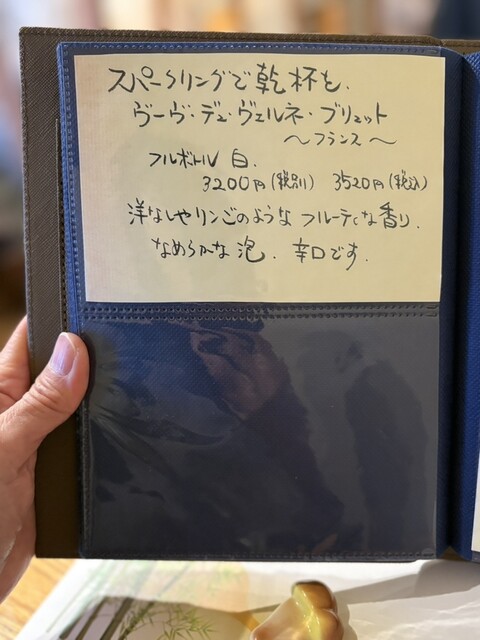 スパークリングで乾杯を.
ヴーヴ・デュ・ヴェルネ・ブリュット
～フランス～
フルボトル 白.
3200円(税別) 3520円(税込)
洋なしやリンゴのような フルーティな香り.
なめらかな泡. 辛口です.